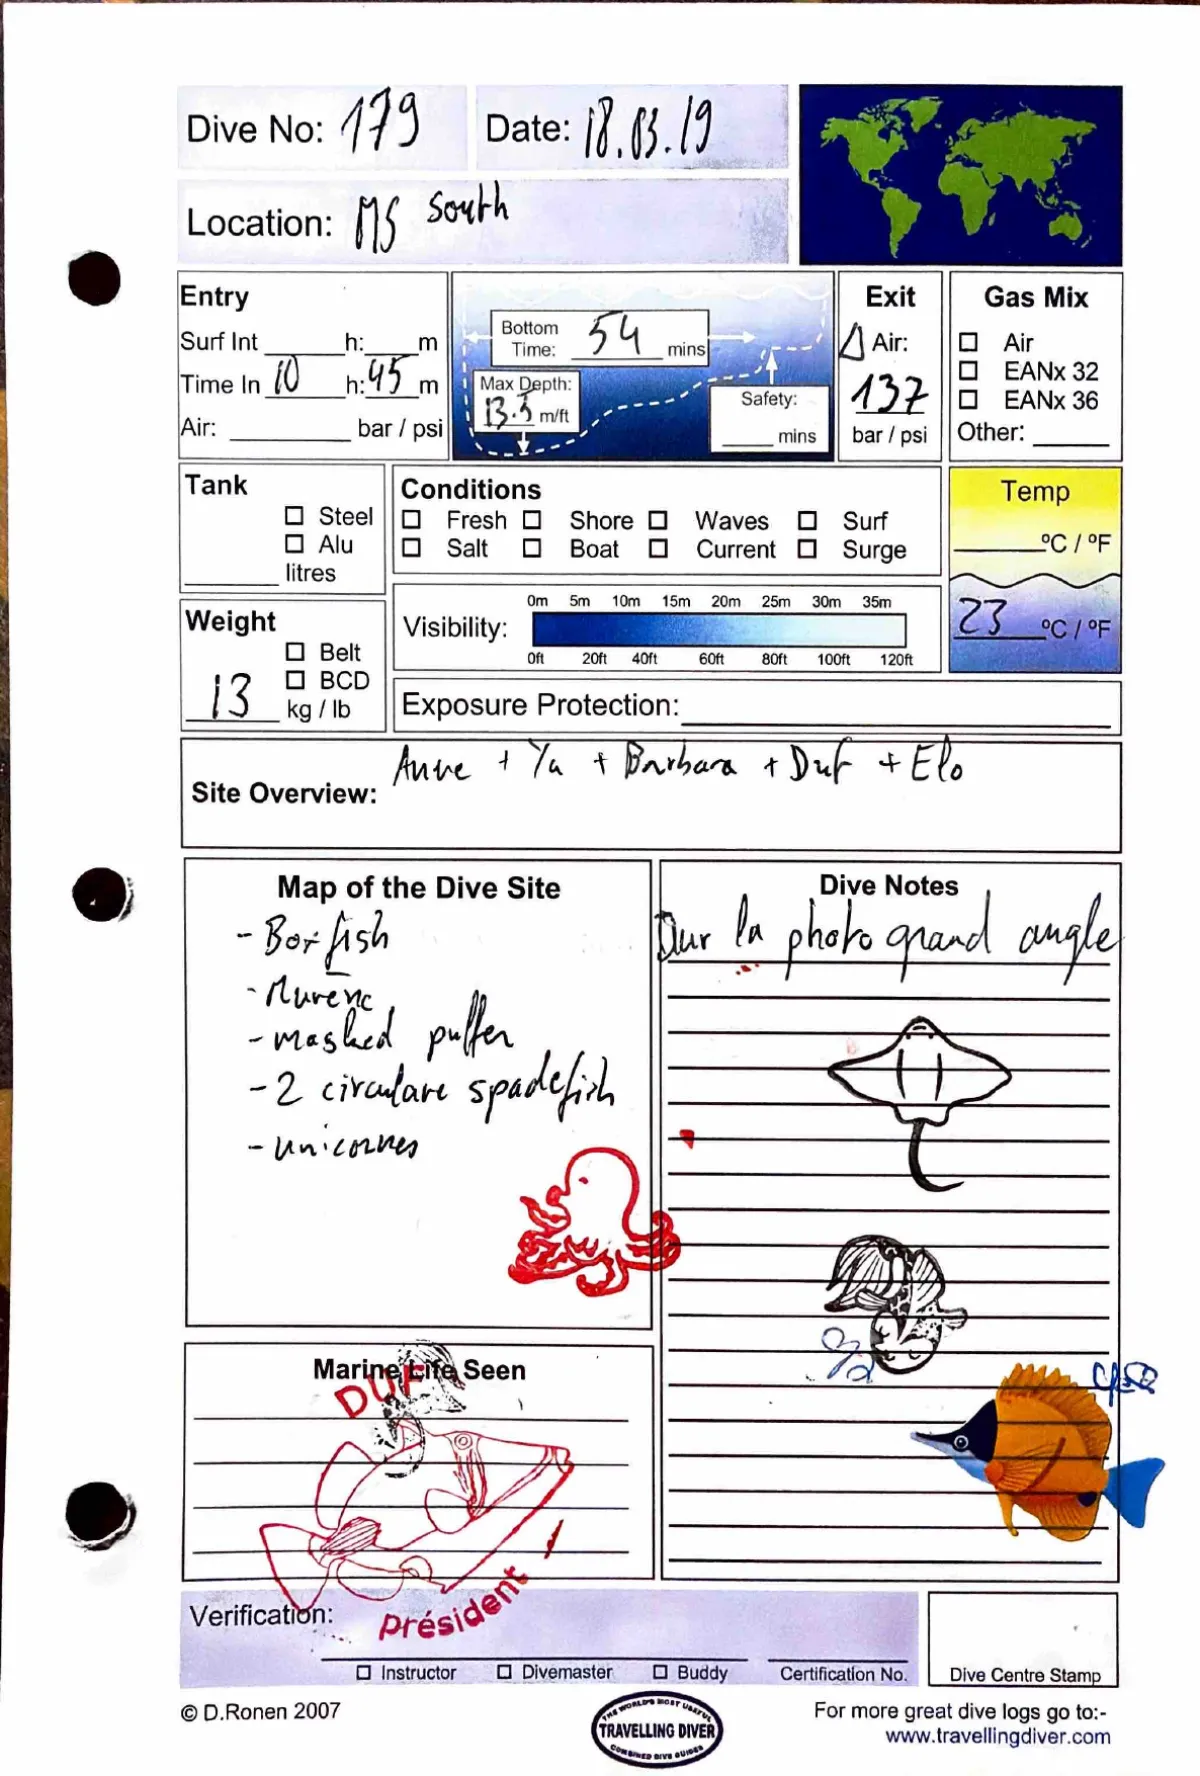 Dive No: 179
Date: 18.03.19
Location: MS South
Entry
Surf Int ____ h: ____ m
Time In 10 h: 45 m
Air: ____ bar / psi
Bottom Time: 54 mins
Max Depth: 13.5 m/ft
Safety: ____ mins
Exit
Δ Air:
137
bar / psi
Gas Mix
☐ Air
☐ EANx 32
☐ EANx 36
Other: ____
Tank
☐ Steel
☐ Alu
____ litres
Conditions
☐ Fresh ☐ Shore ☐ Waves ☐ Surf
☐ Salt ☐ Boat ☐ Current ☐ Surge
Temp
____ °C / °F
23 °C / °F
Weight
☐ Belt
☐ BCD
13 kg / lb
Visibility:
0m 5m 10m 15m 20m 25m 30m 35m
0ft 20ft 40ft 60ft 80ft 100ft 120ft
Exposure Protection:
Anne + Ya + Barbara + Duf + Elo
Site Overview:
Map of the Dive Site
- Boxfish
- Murène
- masked puffer
- 2 circulare spadefish
- unicornes
Dive Notes
Dur la photo grand angle
Marine Life Seen
DUF
Président
Verification:
☐ Instructor ☐ Divemaster ☐ Buddy
Certification No.
Dive Centre Stamp
© D.Ronen 2007
THE WORLD'S MOST USEFUL
TRAVELLING DIVER
COMBINED DIVE GUIDES
For more great dive logs go to:-
www.travellingdiver.com